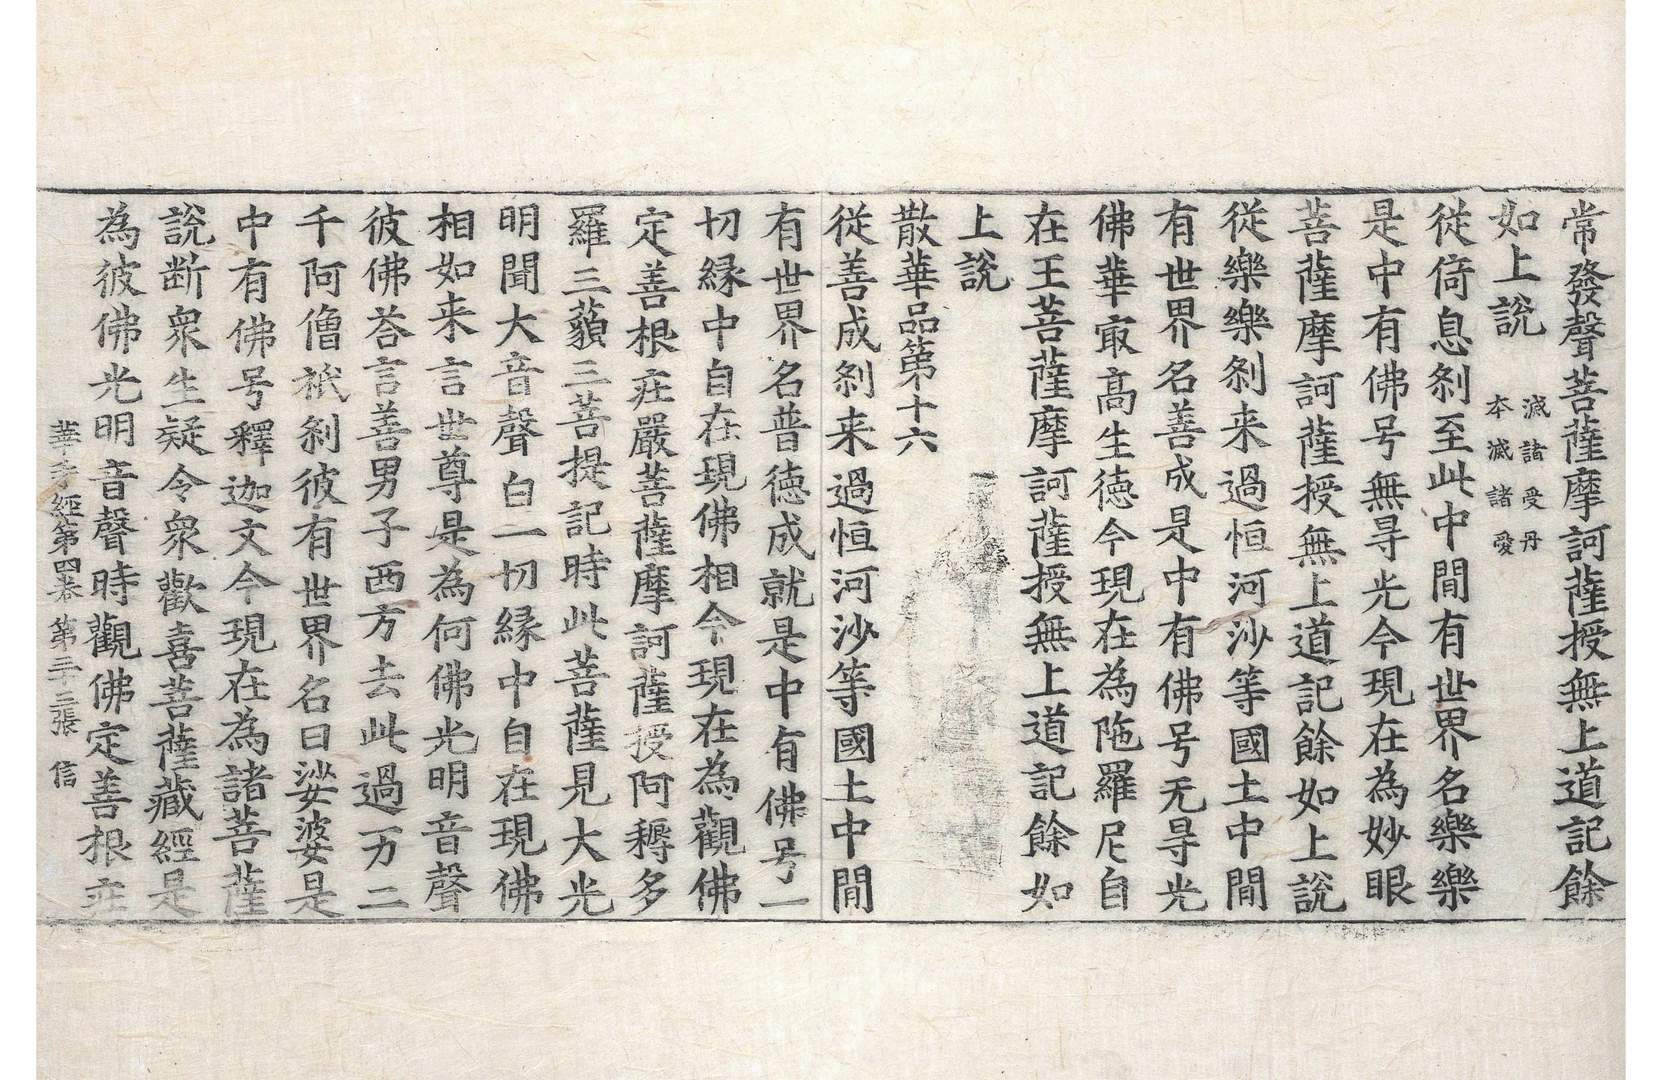 常發聲菩薩摩訶薩授無上道記餘
如上說 滅諸受丹
本滅諸愛
從倚息刹至此中間有世界名樂樂
是中有佛号無㝵光今現在為妙眼
菩薩摩訶薩授無上道記餘如上說
從樂樂刹来過恒河沙等國土中間
有世界名善成是中有佛号无㝵光
佛華㝡高生德今現在為陁羅尼自
在王菩薩摩訶薩授無上道記餘如
上說
散華品第十六
從善成刹来過恒河沙等國土中間
有世界名普德成就是中有佛号一
切緣中自在現佛相今現在為觀佛
定善根庄嚴菩薩摩訶薩授阿耨多
羅三藐三菩提記時此菩薩見大光
明聞大音聲白一切緣中自在現佛
相如来言世尊是為何佛光明音聲
彼佛荅言善男子西方去此過万二
千阿僧祇刹彼有世界名曰娑婆是
中有佛号釋迦文今現在為諸菩薩
說断衆生疑令衆歡喜菩薩藏經是
為彼佛光明音聲時觀佛定善根庄
華手經第四卷 第二十三張 信